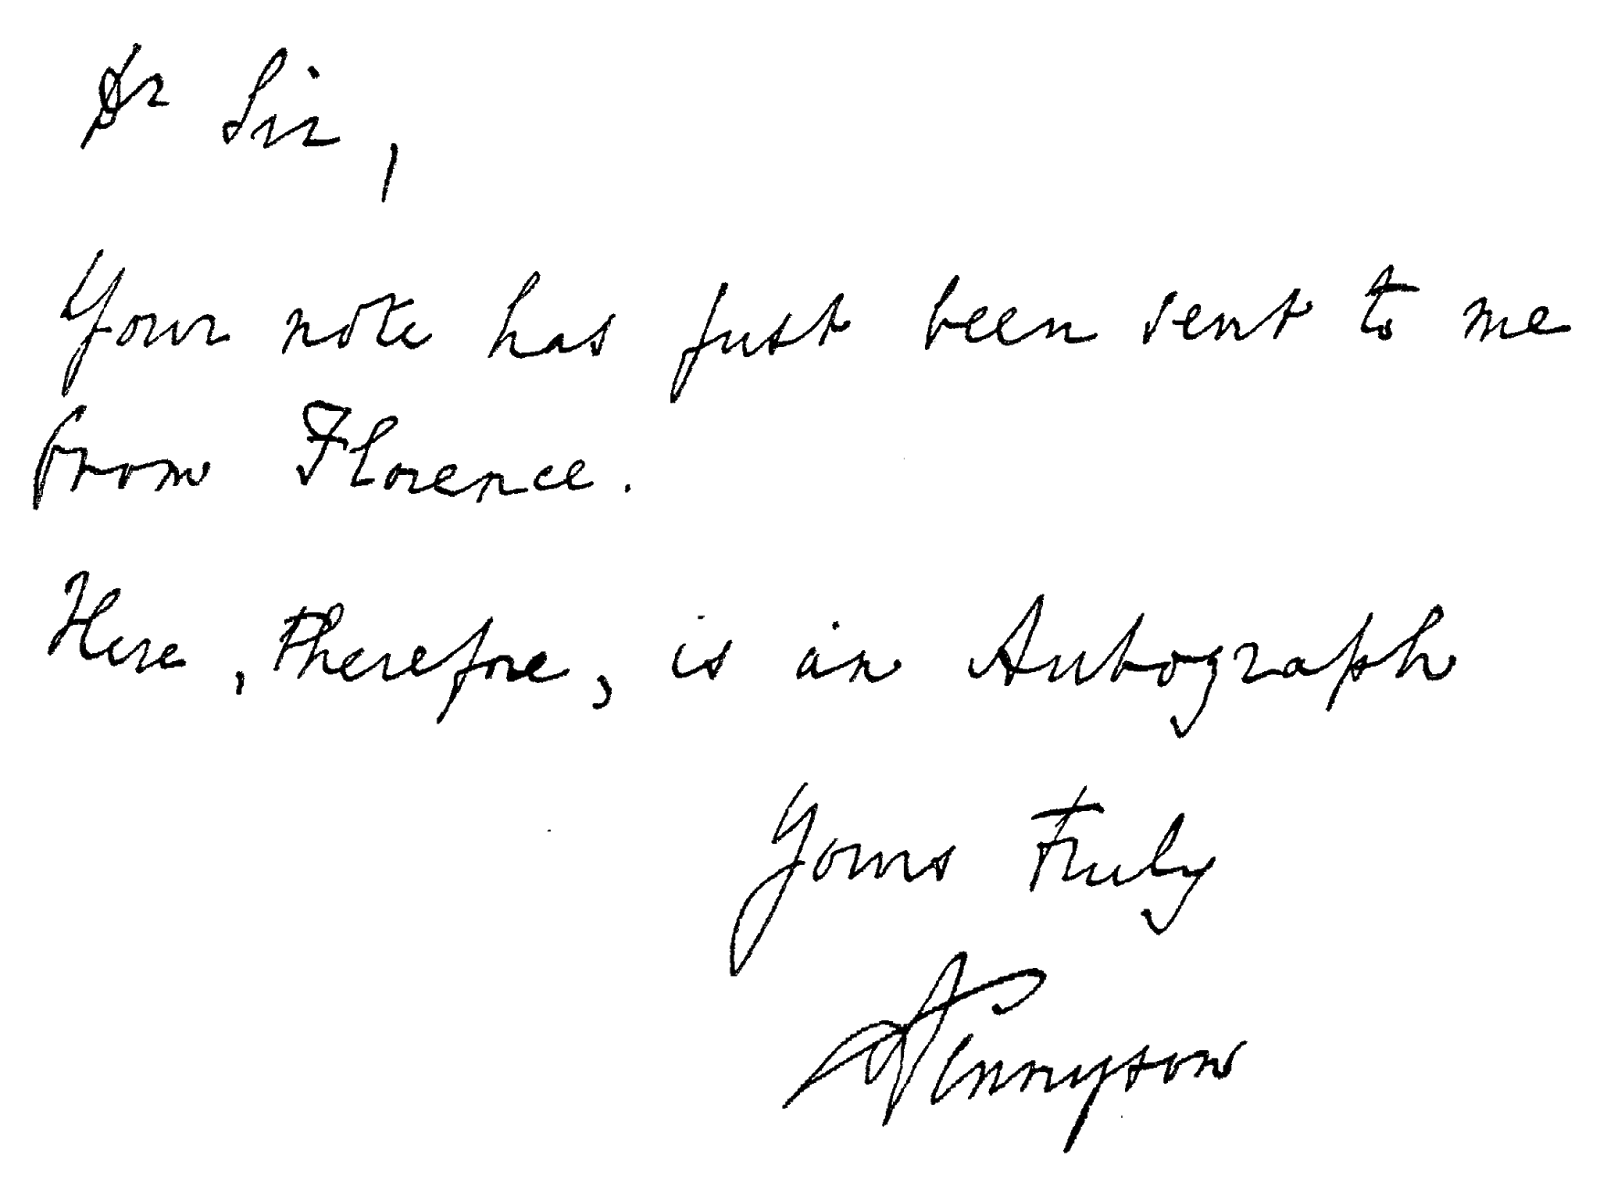 Dr Sir,
Your note has just been sent to me
from Florence.
Here, therefore, is an Autograph
Yours Truly
ATennyson